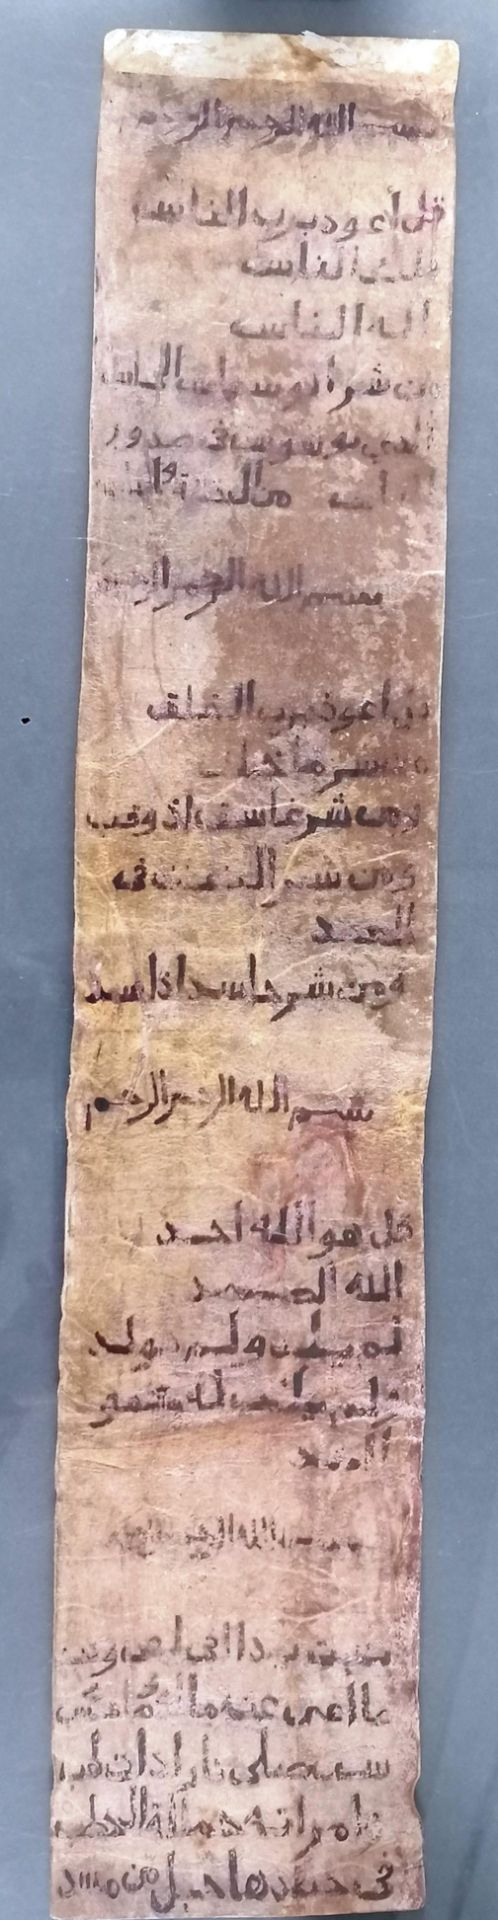 بسم الله الرحمن الرحيم
قل أعوذ برب الناس
ملك الناس
اله الناس
من شر الوسواس الخناس
الذي يوسوس في صدور
الناس من الجنة و الناس
بسم الله الرحمن الرحيم
قل اعوذ برب الفلق
من شر ما خلق
ومن شر غاسق اذا وقب
ومن شر النفثت في
العقد
ومن شر حاسد اذا حسد
بسم الله الرحمن الرحيم
قل هو الله احد
الله الصمد
لم يلد ولم يولد
ولم يكن له كفو
احد
بسم الله الرحمن الرحيم
تبت يدا ابي لهب وتب
ما اغنى عنه ماله وما كسب
سيصلى نارا ذات لهب
وامراته حمالة الحطب
في جيدها حبل من مسد